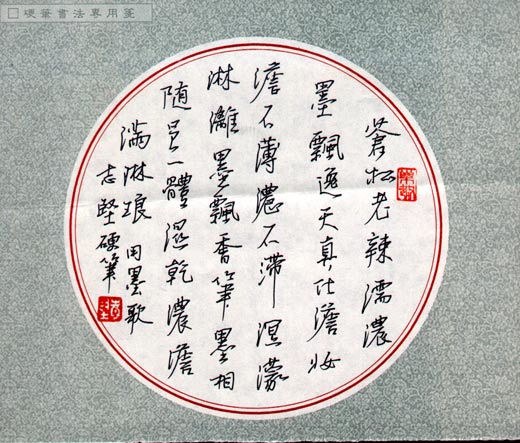 硬筆書法專用箋
蒼松老辣濡濃
墨飄逸天真仕澹妆
澹不薄濃不滞溟濛
淋漓墨飄香筆墨相
随呈一體濕乾濃澹
满淋琅 用墨歌
志堅硬筆